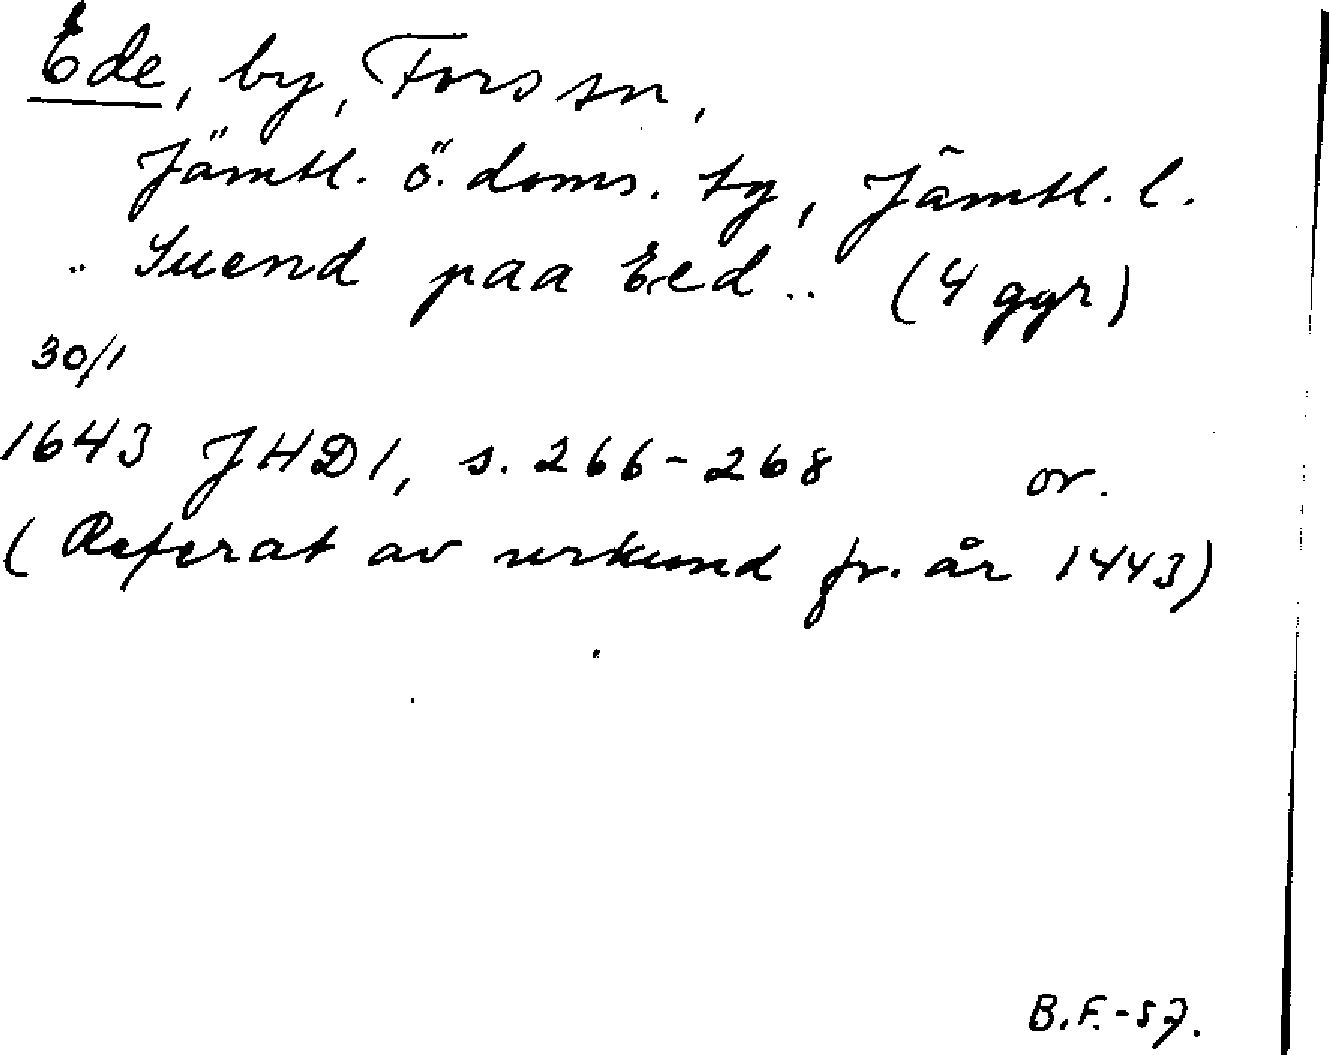 Ede, by, Fors sn,
Jämtl. ö. doms. tg, Jämtl. l.
.. Suend paa Eed .. (4 ggr)
30/1
1643 JHD1, s. 266-268 or.
(Referat av urkund fr. år 1443)
B.F.-57.